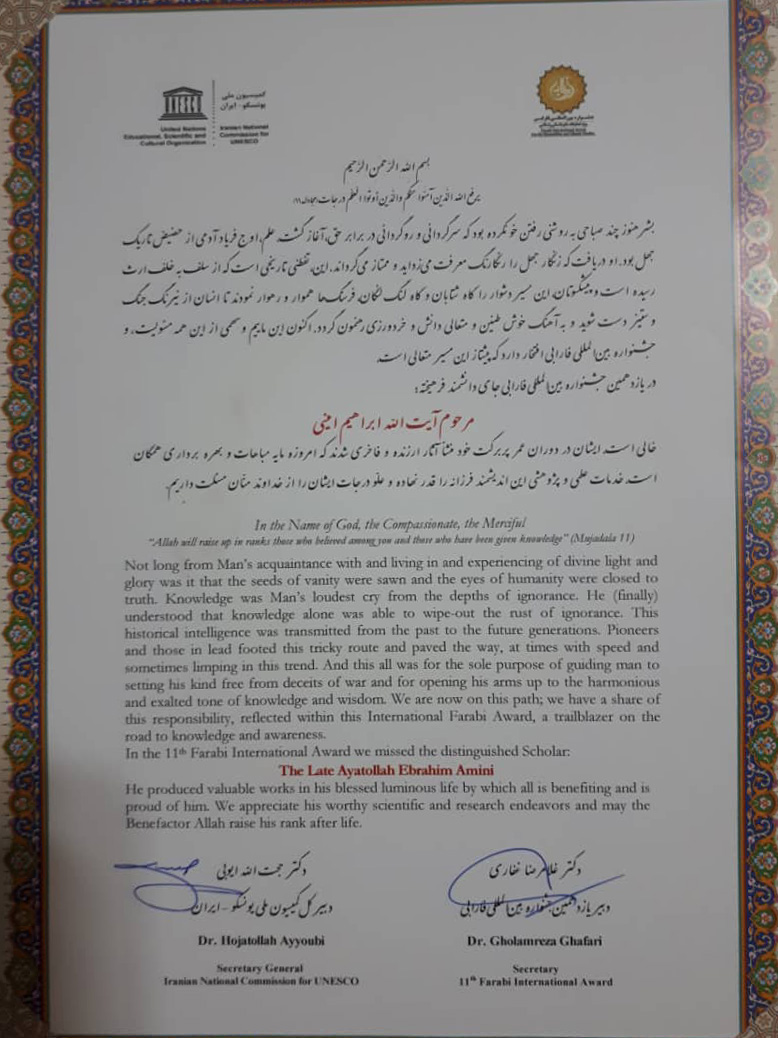 کمیسیون ملی
یونسکو - ایران
United Nations
Educational, Scientific and
Cultural Organization
Iranian National
Commission for
UNESCO
بسم الله الرّحمن الرّحیم
یرفع الله الّذین آمنوا منکم والّذین أوتوا العلم درجات (مجادله ۱۱)
بشر هنوز چند صباحی به روشنی رفتن خو نکرده بود که سرگردانی و روگردانی در برابر حق، آغاز گشت. علم، اوج فریاد آدمی از حضیض تاریک
جهل بود. او دریافت که زنگار جهل را رنگارنگ معرفت می‌زداید و ممتاز می‌گرداند. این، تفطنی تاریخی است که از سلف به خلف ارث
رسیده است و پیشگوتان، این مسیر دشوار را گاه شتابان و گاه لنگ لنگان، فرسنگ‌ها هموار و رهوار نمودند تا انسان از نیرنگ جنگ
و ستیز دست شوید و به آهنگ خوش طنین و متعالی دانش و خردورزی رهنمون گردد. اکنون این ماییم و سهمی از این همه مسئولیت، و
جشنواره بین‌المللی فارابی افتخار دارد که پیشتاز این مسیر متعالی است.
در یازدهمین جشنواره بین‌المللی فارابی جای دانشمند فرهیخته:
مرحوم آیت الله ابراهیم امینی
خالی است. ایشان در دوران عمر پربرکت خود منشأ آثار ارزنده و فاخری شدند که امروزه مایه مباهات و بهره برداری همگان
است. خدمات علمی و پژوهشی این اندیشمند فرزانه را قدر نهاده و علوّ درجات ایشان را از خداوند منّان مسئلت داریم.
In the Name of God, the Compassionate, the Merciful
“Allah will raise up in ranks those who believed among you and those who have been given knowledge” (Mujadala 11)
Not long from Man’s acquaintance with and living in and experiencing of divine light and
glory was it that the seeds of vanity were sawn and the eyes of humanity were closed to
truth. Knowledge was Man’s loudest cry from the depths of ignorance. He (finally)
understood that knowledge alone was able to wipe-out the rust of ignorance. This
historical intelligence was transmitted from the past to the future generations. Pioneers
and those in lead footed this tricky route and paved the way, at times with speed and
sometimes limping in this trend. And this all was for the sole purpose of guiding man to
setting his kind free from deceits of war and for opening his arms up to the harmonious
and exalted tone of knowledge and wisdom. We are now on this path; we have a share of
this responsibility, reflected within this International Farabi Award, a trailblazer on the
road to knowledge and awareness.
In the 11th Farabi International Award we missed the distinguished Scholar:
The Late Ayatollah Ebrahim Amini
He produced valuable works in his blessed luminous life by which all is benefiting and is
proud of him. We appreciate his worthy scientific and research endeavors and may the
Benefactor Allah raise his rank after life.
دکتر غلامرضا غفاری
دبیر یازدهمین جشنواره بین‌المللی فارابی
Dr. Gholamreza Ghafari
Secretary
11th Farabi International Award
دکتر حجت الله ایوبی
دبیر کل کمیسیون ملی یونسکو - ایران
Dr. Hojatollah Ayyoubi
Secretary General
Iranian National Commission for UNESCO